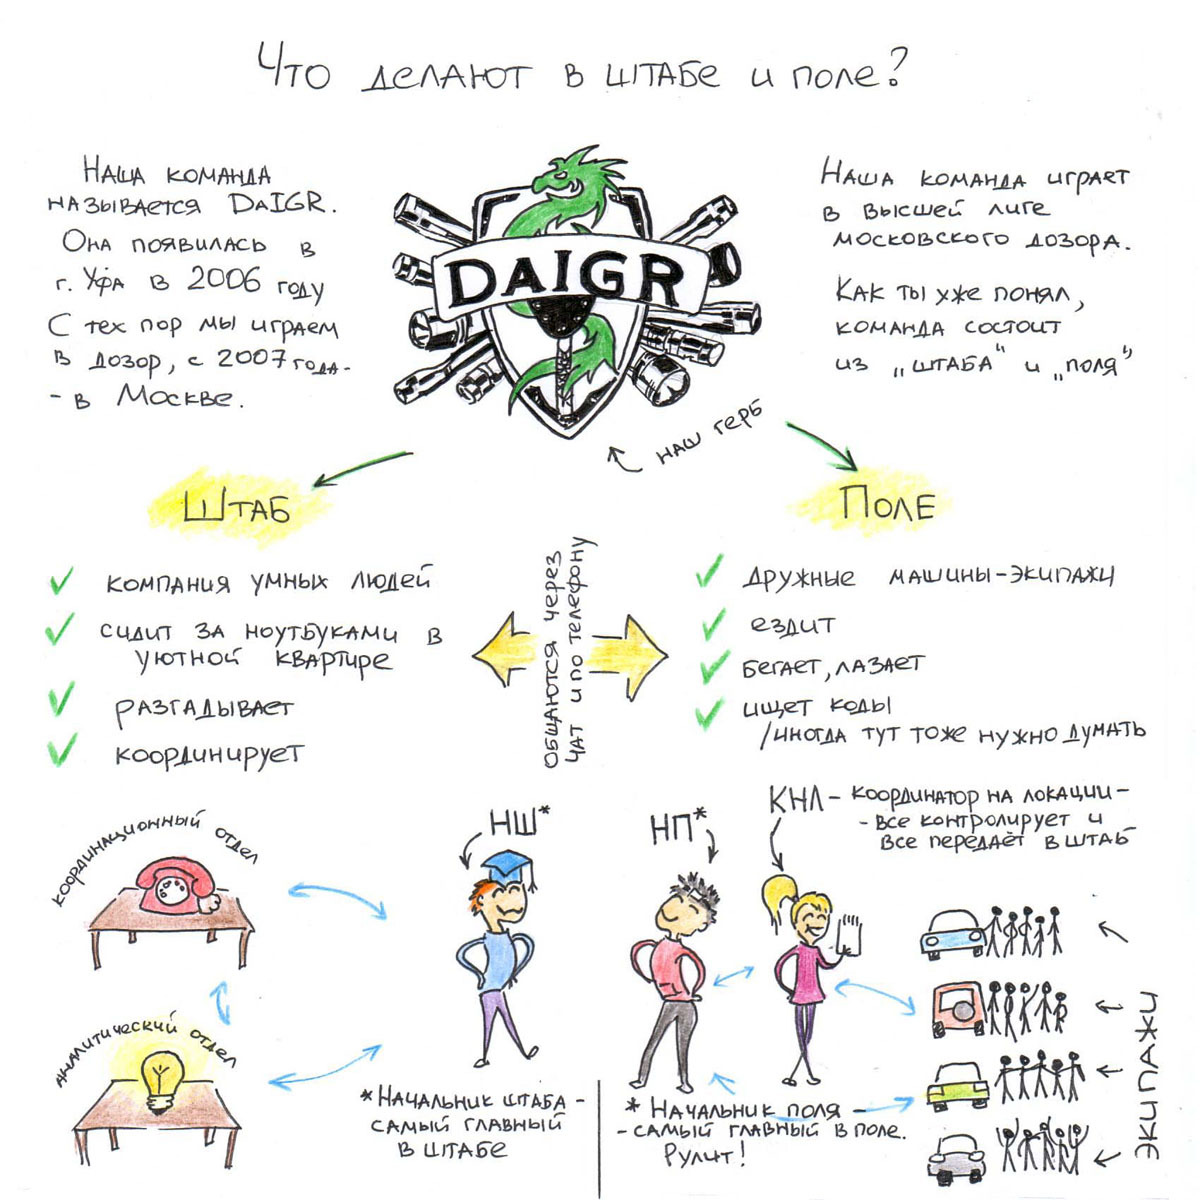 Что делают в штабе и поле?
Наша команда
называется DaIGR.
Она появилась в
г. Уфа в 2006 году
С тех пор мы играем
в дозор, с 2007 года -
- в Москве.
DAIGR
наш герб
Наша команда играет
в высшей лиге
московского дозора.
Как ты уже понял,
команда состоит
из „штаба“ и „поля“
Штаб
компания умных людей
сидит за ноутбуками в
уютной квартире
разгадывает
координирует
общаются через
чат и по телефону
Поле
дружные машины-экипажи
ездит
бегает, лазает
ищет коды
/иногда тут тоже нужно думать
координационный отдел
аналитический отдел
НШ*
*Начальник штаба -
самый главный
в штабе
НП*
КНЛ - координатор на локации -
- все контролирует и
все передаёт в штаб
* Начальник поля -
- самый главный в поле.
Рулит!
экипажи